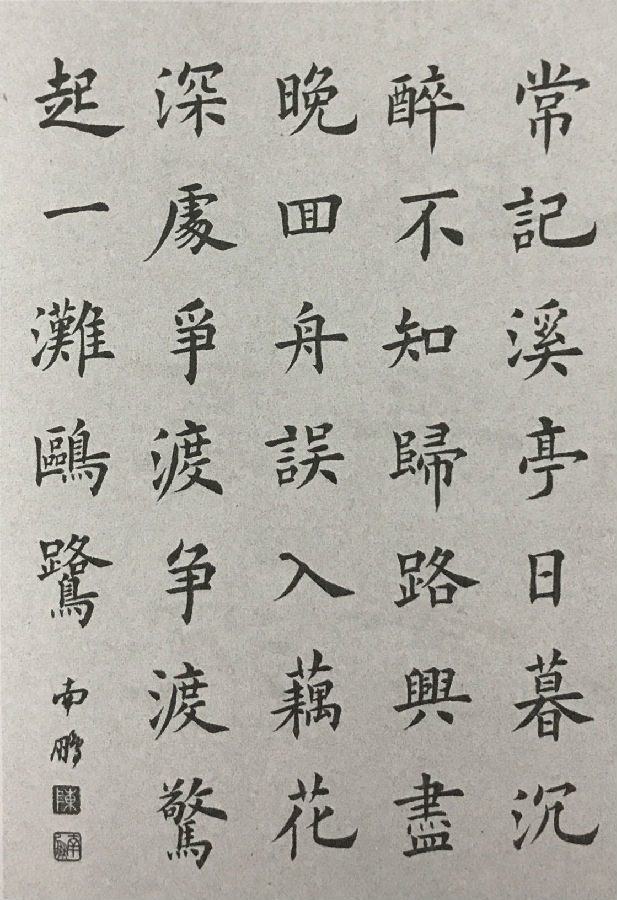 常記溪亭日暮沉
醉不知歸路興盡
晚回舟誤入藕花
深處爭渡争渡驚
起一灘鷗鷺
南鵬
陳